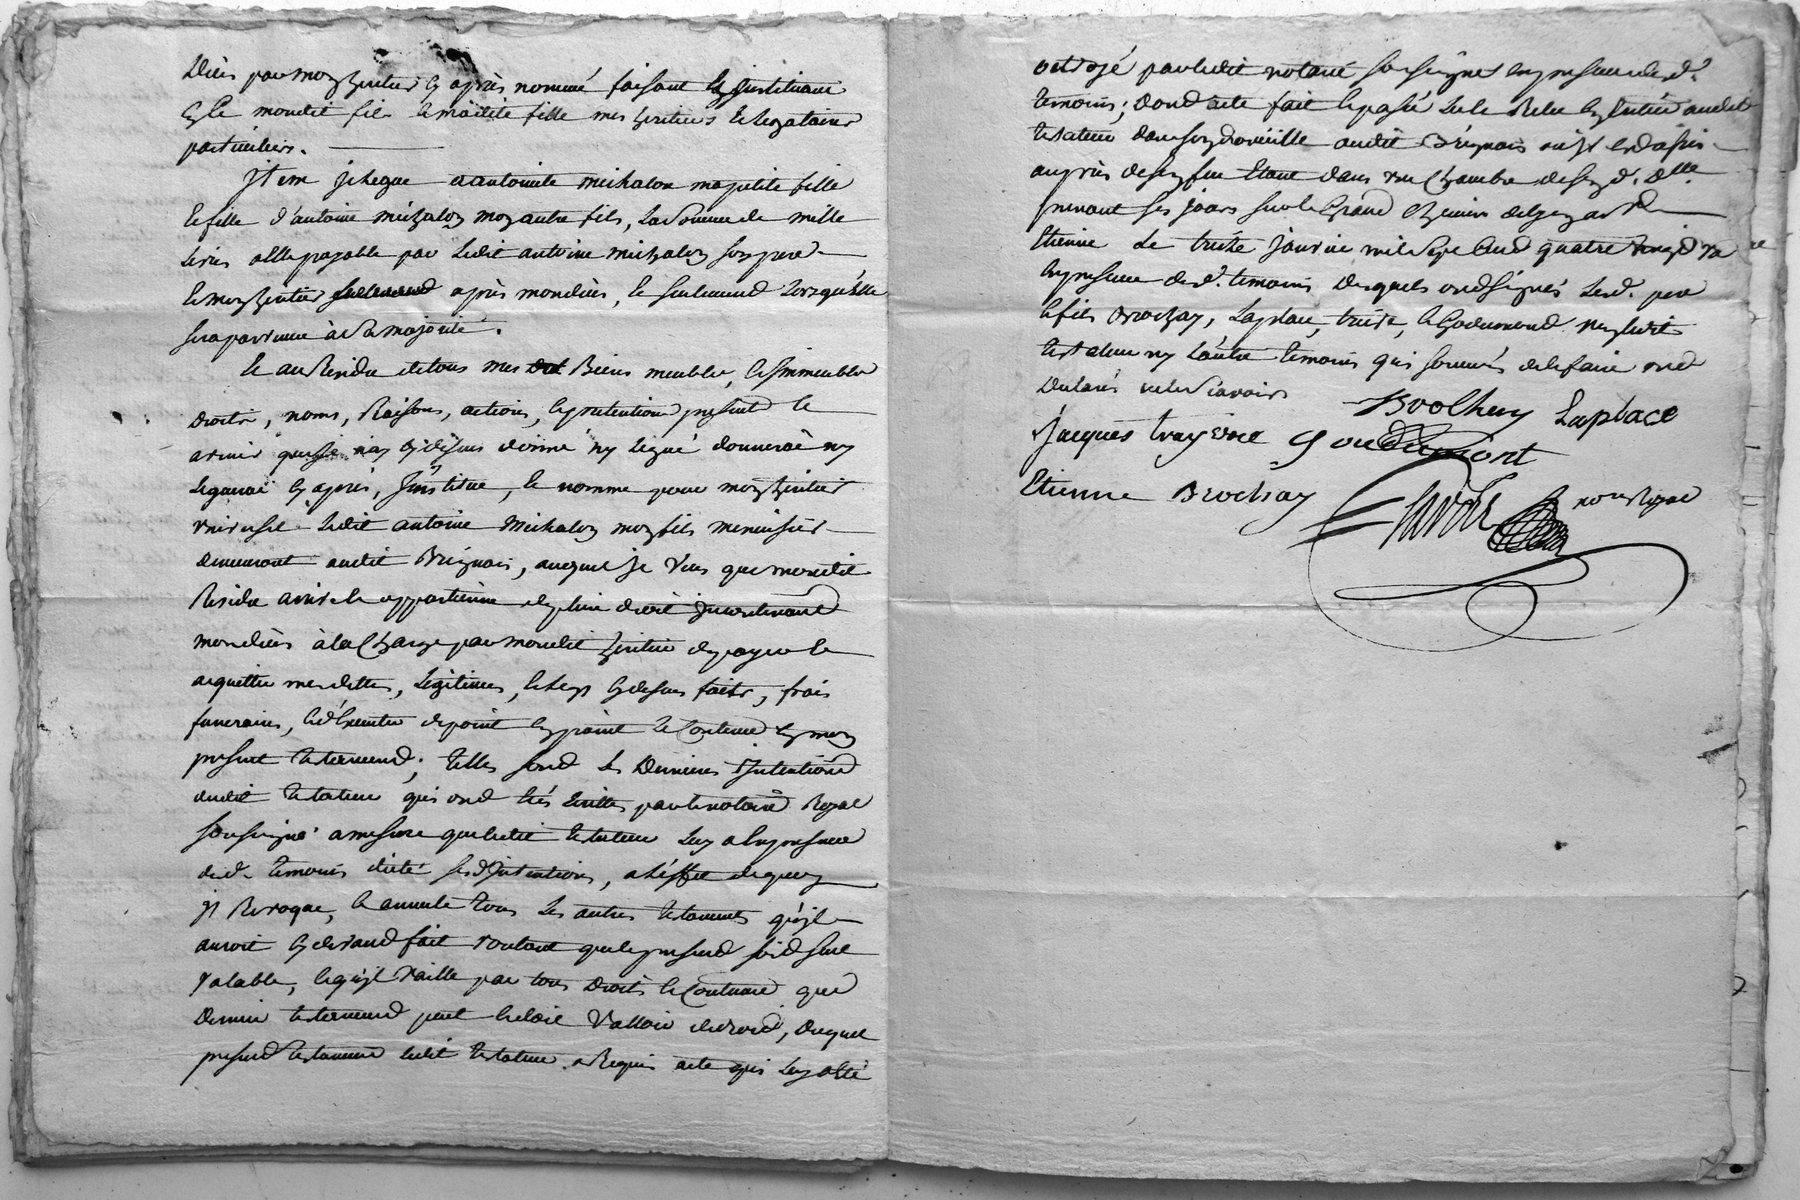 Décès par mon heritier cy après nommé faisant & instituant
les le mondit fils & maditte fille mes heritiers & legataires
particuliers.
jtem je legue a antoinette michalon ma petite fille
& fille d'antoine michalon mon autre fils, la Somme de mille
Livres a elle payable par Ledit antoine michalon son pere
& mon heritier après mon décès, & seulement Lorsqu'elle
sera parvenue à Sa majorité.
Et au Residu de tous mes Biens meubles, & jmmeubles
Droits, noms, Raisons, actions, & pretentions presents &
avenir que je n'ay cy dessus donné ny Legué donnerai ny
Leguerai cy après, J'institue, & nomme pour mon heritier
universel Ledit antoine Michalon mon fils menuisier
demeurant audit Brignais, auquel je Veux que mondit
Residu arrive & appartienne de plein droit jncontinant
mon décès à la Charge par mondit heritier de payer &
acquitter mes dettes, Légitimes, & legs cy dessus faits, frais
funeraires, & d'Executer de point en point le Contenu en mon
present testament; telles sont les Dernieres Intentions
dudit testateur qui ont étés Ecrittes par le notaire Royal
soussigné a mesure que ledit testateur Luy a en presence
desd. temoins dicté sesd. Intentions, a l'effet de quoy
jl Revoque, & annulle tous Les autres testaments qu'jl
auroit cy devant fait voulant que le present soit seul
Valable, & qu'jl Vaille par tous Droits & Coutume que
Dernier testament peut & doit Valloir de droit, Duquel
present testament Ledit testateur a Requis acte qui Luy a été
octroyé par Ledit notaire soussigné en presence desd.
temoins; Dont acte fait & passé Lu & Relu en Entier audit
testateur dans son domicille audit Brignais où jl est assis
auprès de son feu Etant dans une Chambre de sond. Dlle
prenant ses jours sur le Grand Chemin de Lyon a St
Etienne Le treize Janvier mil Sept Cent quatre vingt
En presence desd. temoins Desquels ont signés Lesd. pere
& fils Brochay, Laplace, & Goudumont non ledit
testateur ny L'autre temoin qui sommés de le faire ont
Declarés ne le Scavoir
Brochay Laplace
Jacques
Goudumont
Etienne Brochay
nore Royal